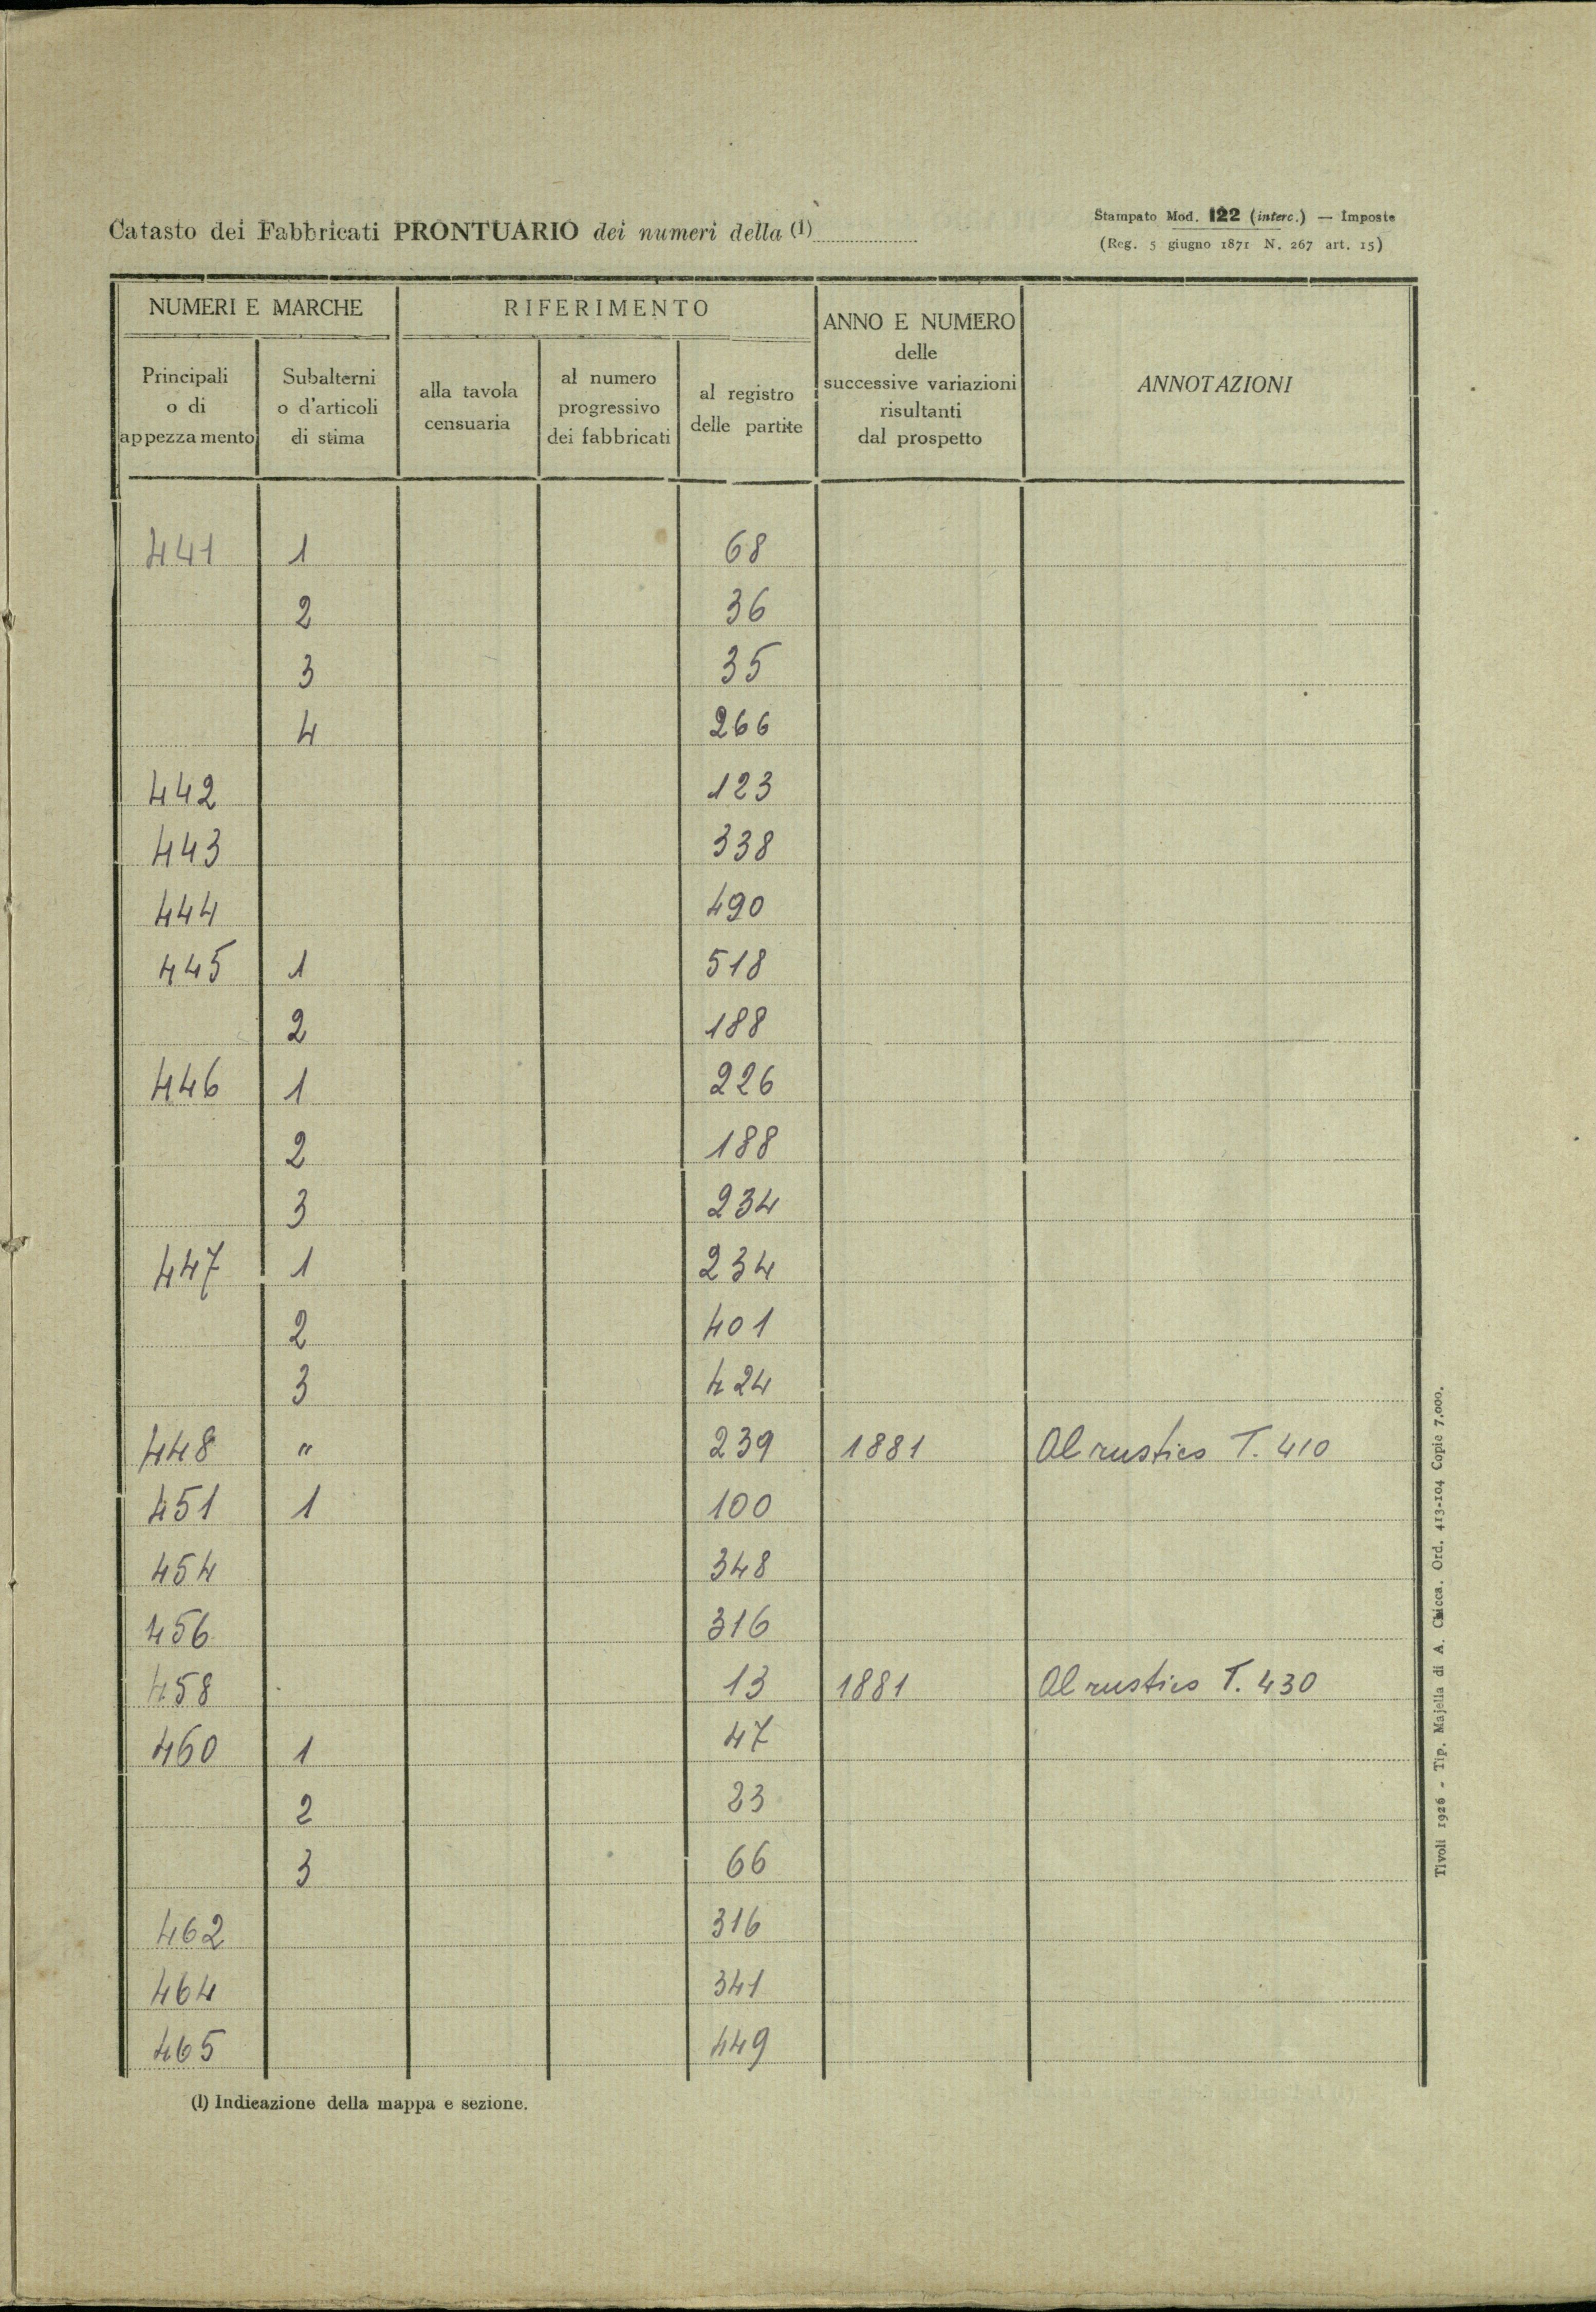 Catasto dei Fabbricati PRONTUARIO dei numeri della (1)
Stampato Mod. 122 (interc.) — Imposte
(Reg. 5 giugno 1871 N. 267 art. 15)
NUMERI E MARCHE
RIFERIMENTO
ANNO E NUMERO
delle
successive variazioni
risultanti
dal prospetto
ANNOTAZIONI
Principali
o di
appezzamento
Subalterni
o d'articoli
di stima
alla tavola
censuaria
al numero
progressivo
dei fabbricati
al registro
delle partite
441 1 68
2 36
3 35
4 266
442 123
443 338
444 490
445 1 518
2 188
446 1 226
2 188
3 234
447 1 234
2 401
3 424
448 " 239 1881 Al rustico T. 410
451 1 100
454 348
456 316
458 13 1881 Al rustico T. 430
460 1 47
2 23
3 66
462 316
464 341
465 449
(1) Indicazione della mappa e sezione.
Tivoli 1926 - Tip. Majella di A. Chicca. Ord. 413-104 Copie 7,000.